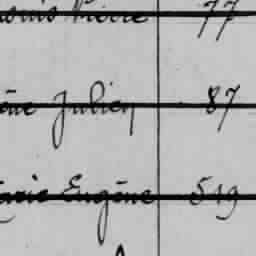 Pierre 77
Julien 87
Marie Eugène 519